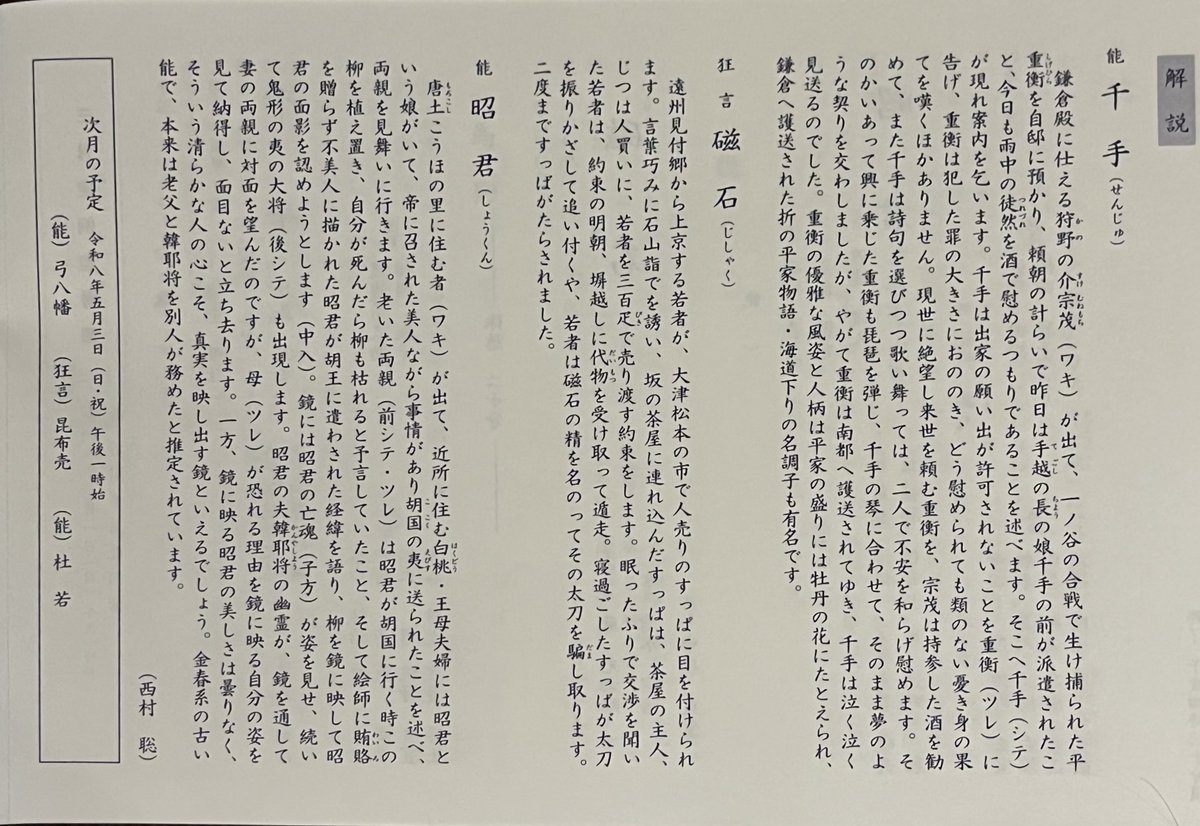 解説
能 千手（せんじゅ）
鎌倉殿に仕える狩野の介宗茂（ワキ）が出て、一ノ谷の合戦で生け捕られた平
重衡を自邸に預かり、頼朝の計らいで昨日は手越の長の娘千手の前が派遣されたこ
と、今日も雨中の徒然を酒で慰めるつもりであることを述べます。そこへ千手（シテ）
が現れ案内を乞います。千手は出家の願い出が許可されないことを重衡（ツレ）に
告げ、重衡は犯した罪の大きさにおののき、どう慰められても類のない憂き身の果
てを嘆くほかありません。現世に絶望し来世を頼む重衡を、宗茂は持参した酒を勧
めて、また千手は詩句を選びつつ歌い舞っては、二人で不安を和らげ慰めます。そ
のかいあって興に乗じた重衡も琵琶を弾じ、千手の琴に合わせて、そのまま夢のよ
うな契りを交わしましたが、やがて重衡は南都へ護送されてゆき、千手は泣く泣く
見送るのでした。重衡の優雅な風姿と人柄は平家の盛りには牡丹の花にたとえられ、
鎌倉へ護送された折の平家物語・海道下りの名調子も有名です。
狂言 磁石（じしゃく）
遠州見付郷から上京する若者が、大津松本の市で人売りのすっぱに目を付けられ
ます。言葉巧みに石山詣でを誘い、坂の茶屋に連れ込んだすっぱは、茶屋の主人、
じつは人買いに、若者を三百疋で売り渡す約束をします。眠ったふりで交渉を聞い
た若者は、約束の明朝、塀越しに代物を受け取って遁走。寝過ごしたすっぱが太刀
を振りかざして追い付くや、若者は磁石の精を名のってその太刀を騙し取ります。
二度まですっぱがたらされました。
能 昭君（しょうくん）
唐土こうほの里に住む者（ワキ）が出て、近所に住む白桃・王母夫婦には昭君と
いう娘がいて、帝に召された美人ながら事情があり胡国の夷に送られたことを述べ、
両親を見舞いに行きます。老いた両親（前シテ・ツレ）は昭君が胡国に行く時この
柳を植え置き、自分が死んだら柳も枯れると予言していたこと、そして絵師に賄賂
を贈らず不美人に描かれた昭君が胡王に遣わされた経緯を語り、柳を鏡に映して昭
君の面影を認めようとします（中入）。鏡には昭君の亡魂（子方）が姿を見せ、続い
て鬼形の夷の大将（後シテ）も出現します。昭君の夫韓耶将の幽霊が、鏡を通して
妻の両親に対面を望んだのですが、母（ツレ）が恐れる理由を鏡に映る自分の姿を
見て納得し、面目ないと立ち去ります。一方、鏡に映る昭君の美しさは曇りなく、
そういう清らかな人の心こそ、真実を映し出す鏡といえるでしょう。金春系の古い
能で、本来は老父と韓耶将を別人が務めたと推定されています。
（西村 聡）
次月の予定 令和八年五月三日（日・祝）午後一時始
（能）弓八幡 （狂言）昆布売 （能）杜若